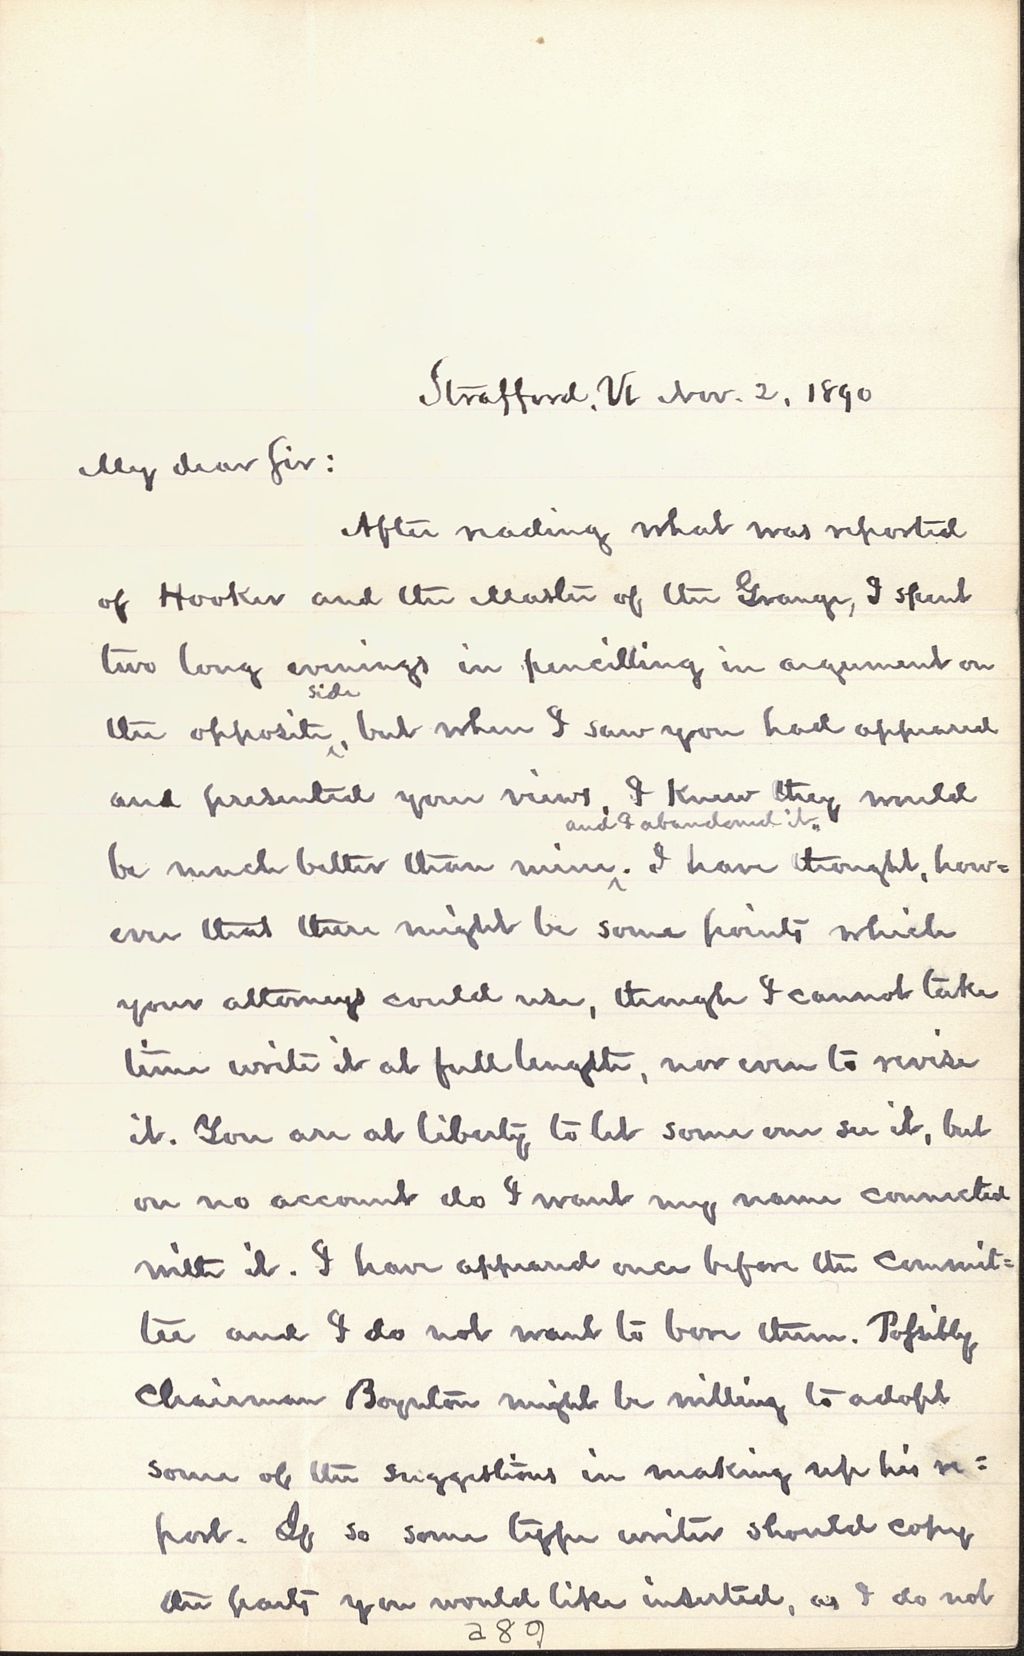 Strafford, Vt Nov. 2, 1890
My dear Sir:
After reading what was reported
of Hooker and the Master of the Grange, I spent
two long evenings in pencilling in argument on
side
the opposite ^, but when I saw you had appeared
and presented your views, I knew they would
and I abandoned it.
be much better than mine ^. I have thought, how=
ever that there might be some points which
your attorneys could use, though I cannot take
time write it at full length, nor even to revise
it. You are at liberty to let some one see it, but
on no account do I want my name connected
with it. I have appeared once before the Commit=
tee and I do not want to bore them. Possibly
Chairman Boynton might be willing to adopt
some of the suggestions in making up his re=
port. If so some type writer should copy
the parts you would like inserted, as I do not
289